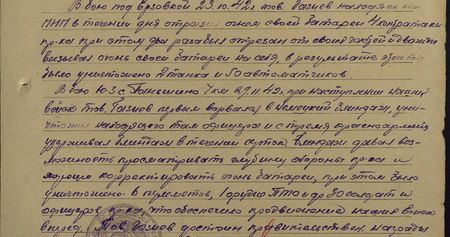 В бою под Вязовкой 23.10.42г. тов. Разнев находясь на
ПНП в течении дня отразил огнем своей батареи 4 контратаки
пр-ка при этом два раза был отрезан от своих и дважды
вызывал огонь своей батареи на себя, в результате этого боя
было уничтожено 2 танка и 50 автоматчиков.
В бою Ю-З с. 7 км 29.11.42г. при наступлении наших
войск тов. Разнев первым ворвался в Немецкий блиндаж, уни-
чтожил находящего там офицера и с тремя красноармейц.
удерживал блиндаж в течении суток. Блиндаж давал воз-
можность просматривать глубину обороны пр-ка и
хорошо корректировать огонь батареи, при этом было
уничтожено 6 пулеметов, 1 орудие ПТО и до 80 солдат и
офицеров пр-ка, что обеспечило продвижение наших войск
вперед. Тов. Разнев достоин правительствен. награды